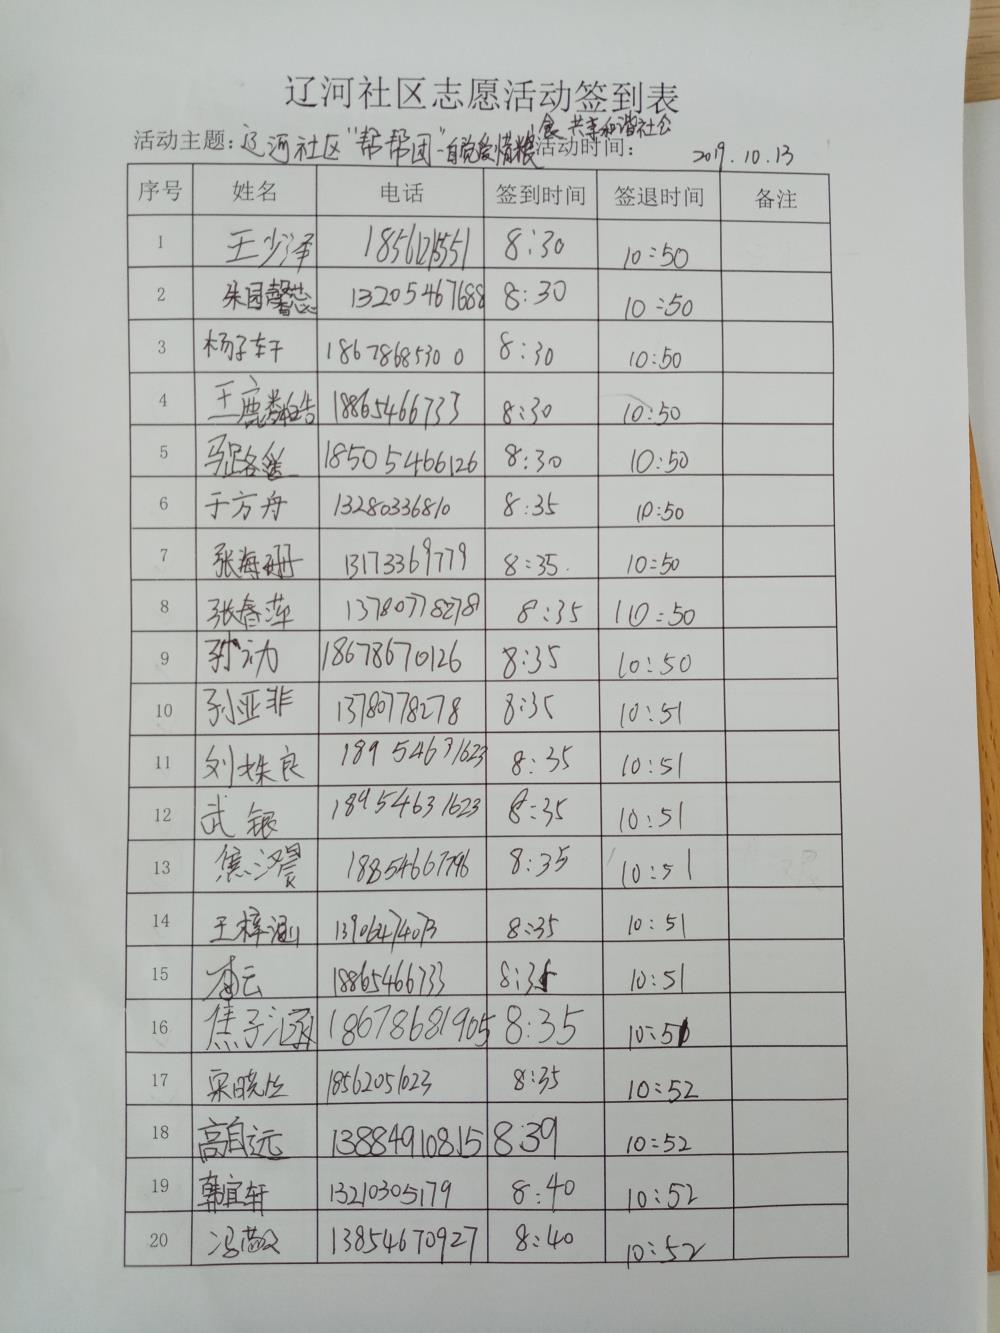 辽河社区志愿活动签到表
食 共享和谐社会
活动主题：辽河社区"帮帮团"-自觉爱惜粮 活动时间： 2019.10.13
序号 姓名 电话 签到时间 签退时间 备注
1 王少泽 18561215551 8:30 10:50
2 朱园馨蕊 13205467688 8:30 10:50
3 杨子轩 18678685300 8:30 10:50
4 王鹿 18865466733 8:30 10:50
5 马路遥 18505466126 8:30 10:50
6 于方舟 13280336810 8:35 10:50
7 张海珊 13173369779 8:35. 10:50
8 张春萍 13780778278 8:35 10:50
9 孙功 18678670126 8:35 10:50
10 孙亚非 13780778278 8:35 10:51
11 刘姝良 18954631623 8:35 10:51
12 武银 18954631623 8:35 10:51
13 焦汐晨 18854667796 8:35 10:51
14 王梓涵 13906474073 8:35 10:51
15 云 18865466733 8:35 10:51
16 焦子涵 18678681905 8:35 10:51
17 晓 18562051623 8:35 10:52
18 高自远 13884910815 8:39 10:52
19 韩宜轩 13210305179 8:40 10:52
20 冯 13854670927 8:40 10:52